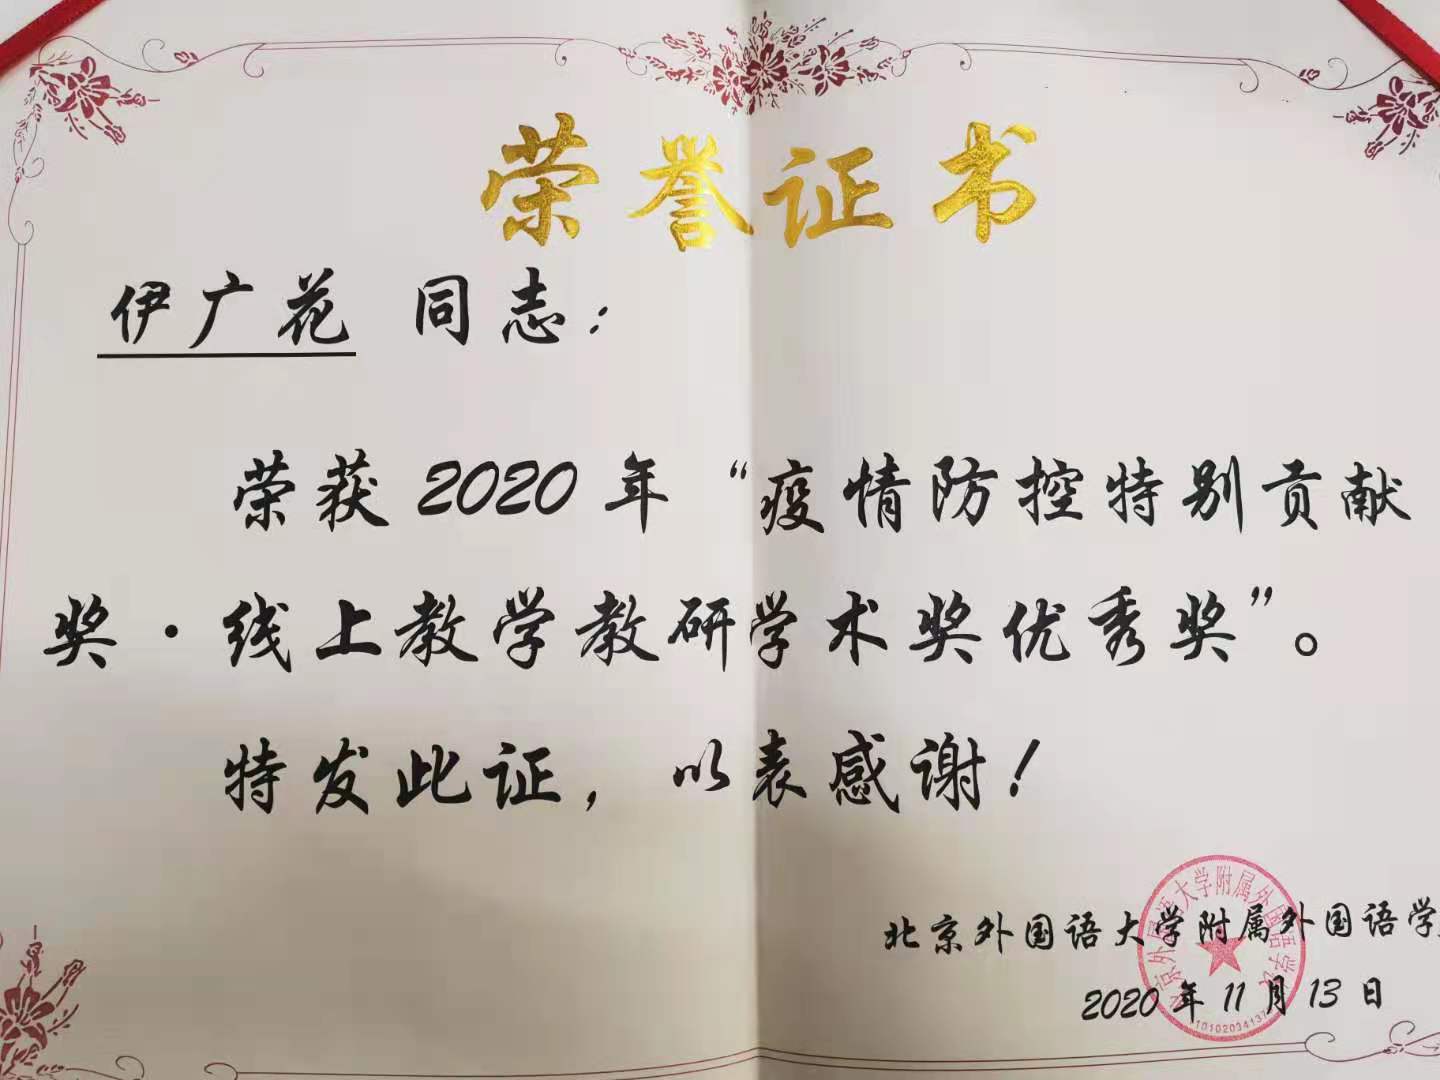 荣誉证书
伊广花 同志：
荣获2020年“疫情防控特别贡献
奖·线上教学教研学术奖优秀奖”。
特发此证，以表感谢！
北京外国语大学附属外国语学
2020年11月13日
京外国语大学附属外国语学